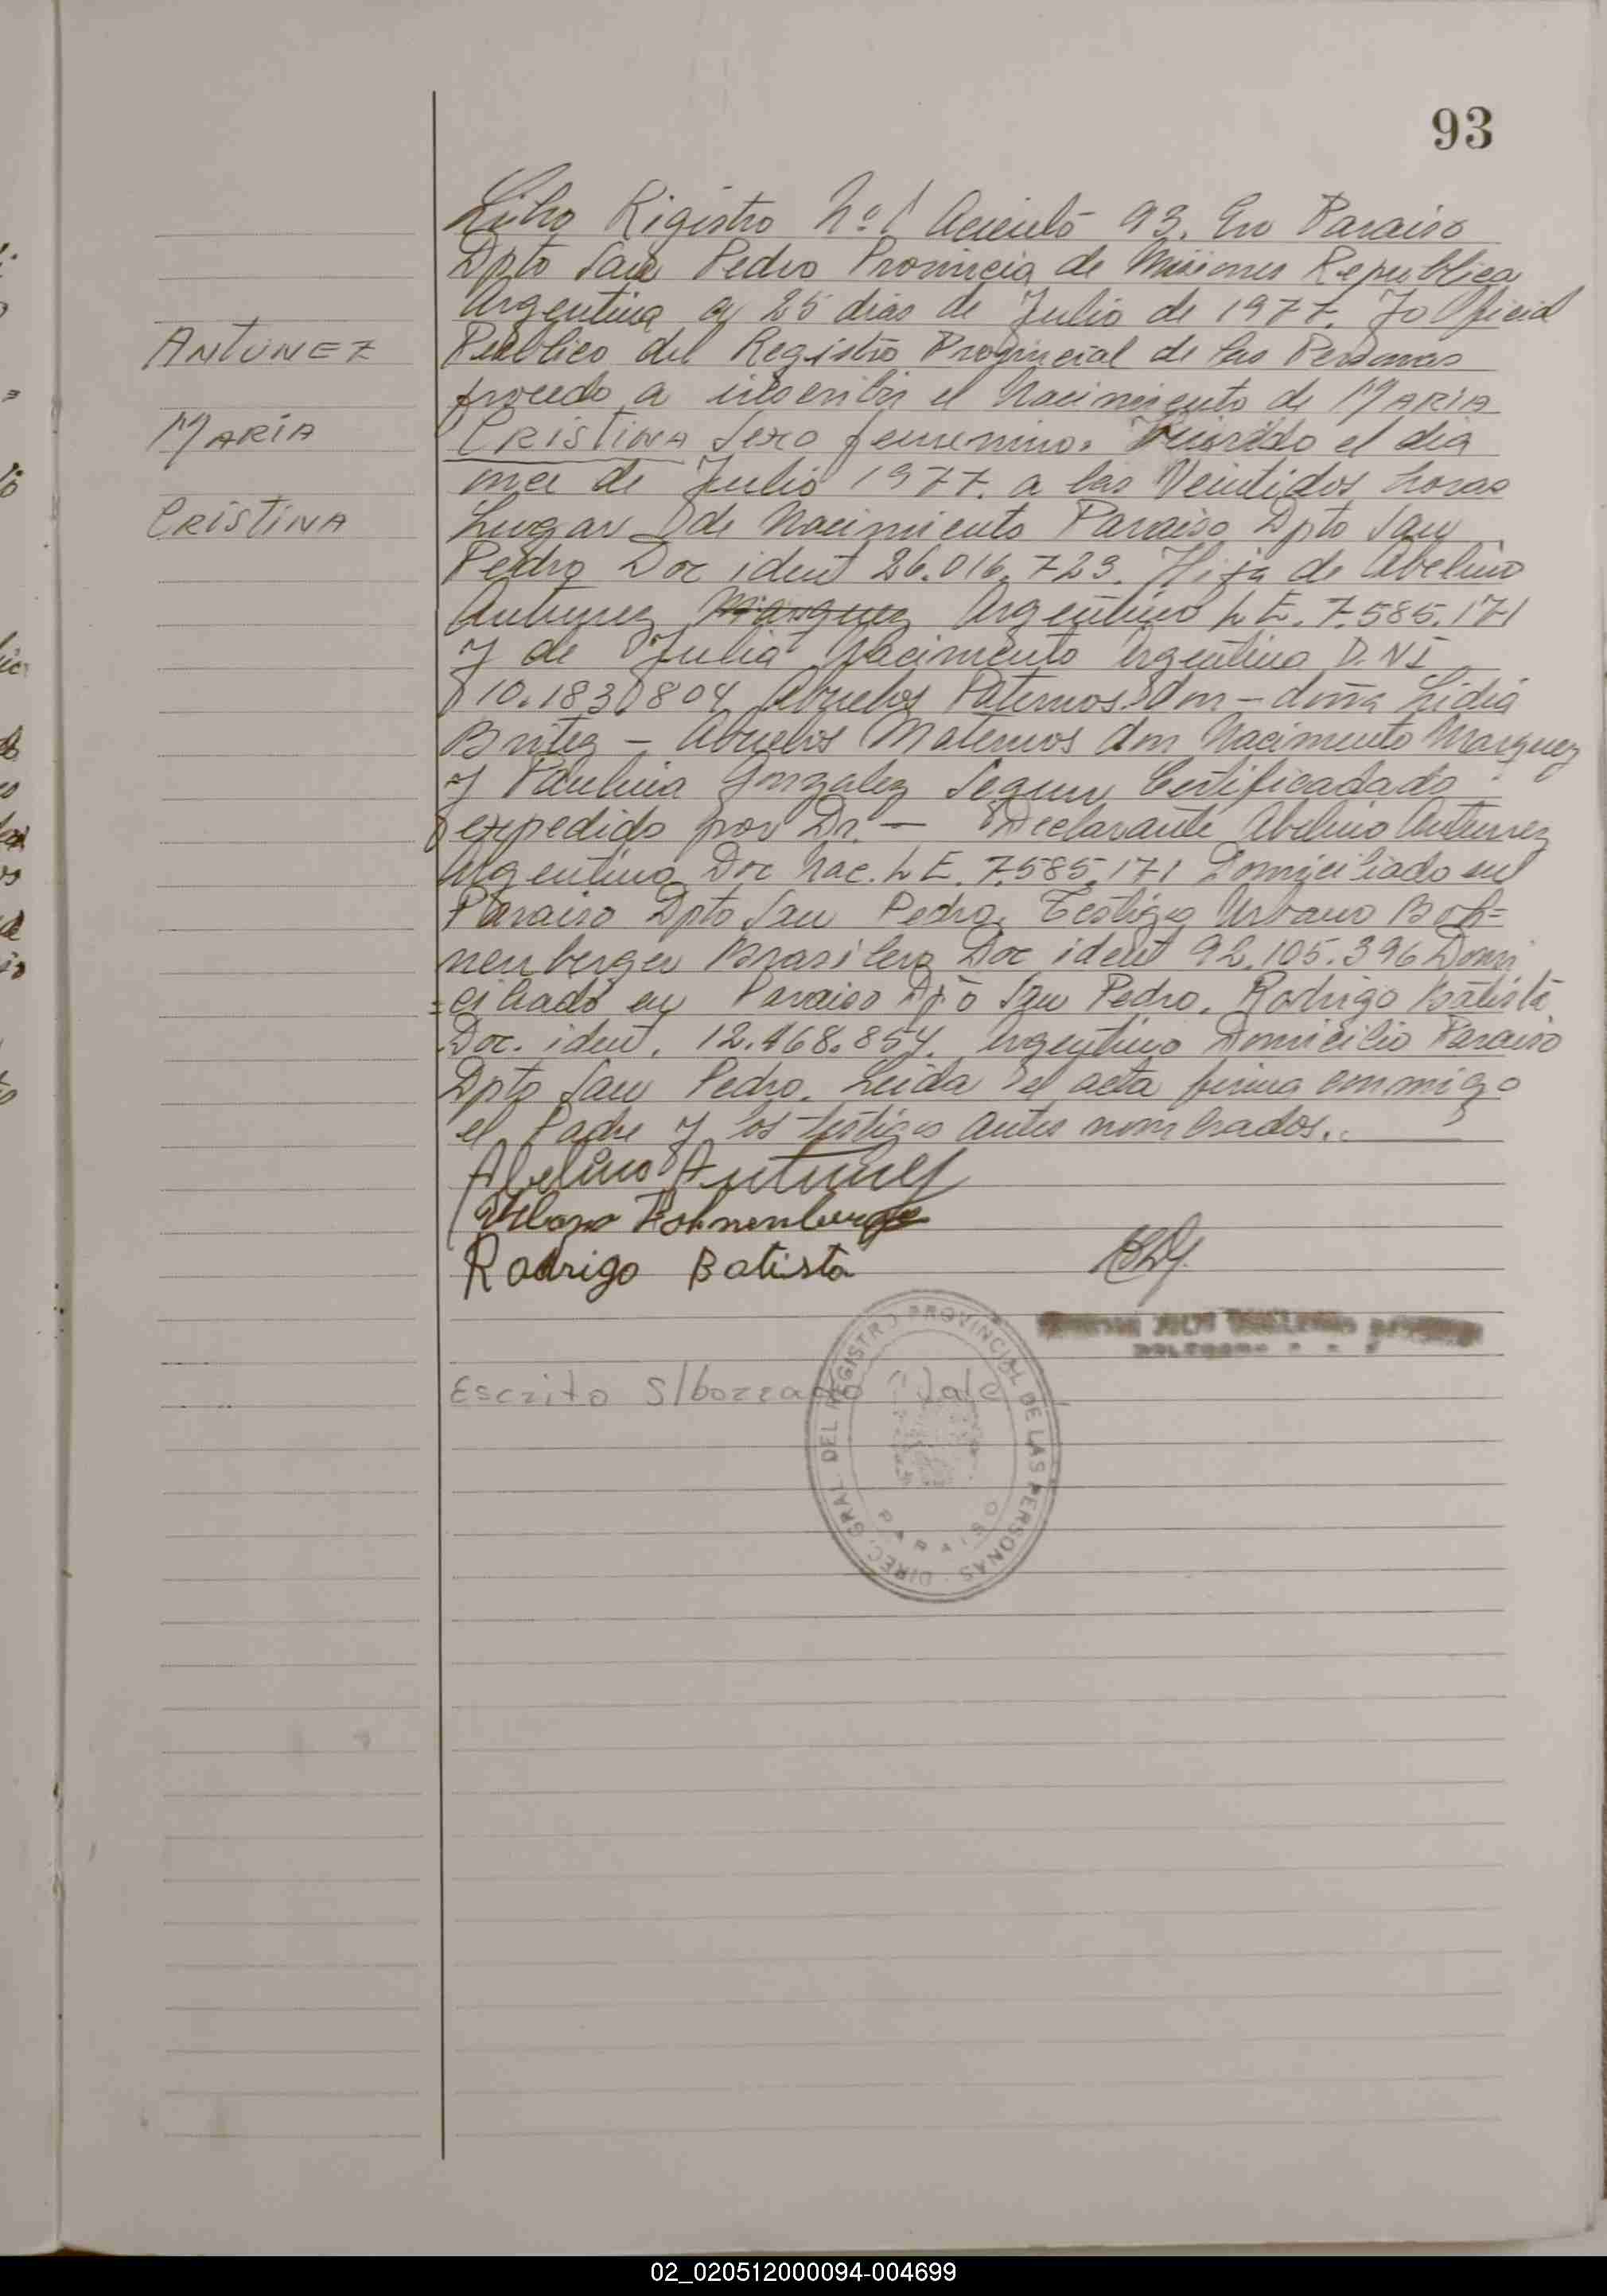 93
Libro Registro Nº 1 Acientó 93. En Paraiso
Dpto San Pedro Provincia de Misiones Republica
Argentina a 25 dias de Julio de 1977. Yo Oficial
ANTUNEZ
Publico del Registro Provincial de las Personas
procedo a inscribir el Nacimiento de MARIA
MARÍA
CRISTINA Sexo femenino. el dia
once de Julio 1977. a las Veintidos horas
CRISTINA
Lugar de Nacimiento Paraiso Dpto San
Pedro Doc ident 26.016.723. Hija de Abelino
Antunez Marquez Argentino L E. 7.585.171
y de Julia Nacimento Argentina D.N.I
10.183.804 Abuelos Paternos don - doña Lidia
Britez - Abuelos Maternos don Nacimento Marquez
y Paulina Gonzalez Segun Certificadado
expedido por Dr. - Declarante Abelino Antunez
Argentino Doc Nac. L E. 7.585.171 Domiciliado en
Paraiso Dpto San Pedro. Testigo Urbano Boh=
nenberger Brasilero Doc ident 92.105.396 Domi
=ciliado en Paraiso Dpto San Pedro. Rodrigo Batista
Doc. ident. 12.468.854. Argentino Domicilio Paraiso
Dpto San Pedro. Leida el acta firma conmigo
el Padre y los testigos antes nombrados.
Abelino Antunez
Urbano Bohnenberger
Rodrigo Batista
DIREC. GRAL. DEL REGISTRO PROVINCIAL DE LAS PERSONAS
PARAISO
Escrito S/borrado Vale
02_020512000094-004699